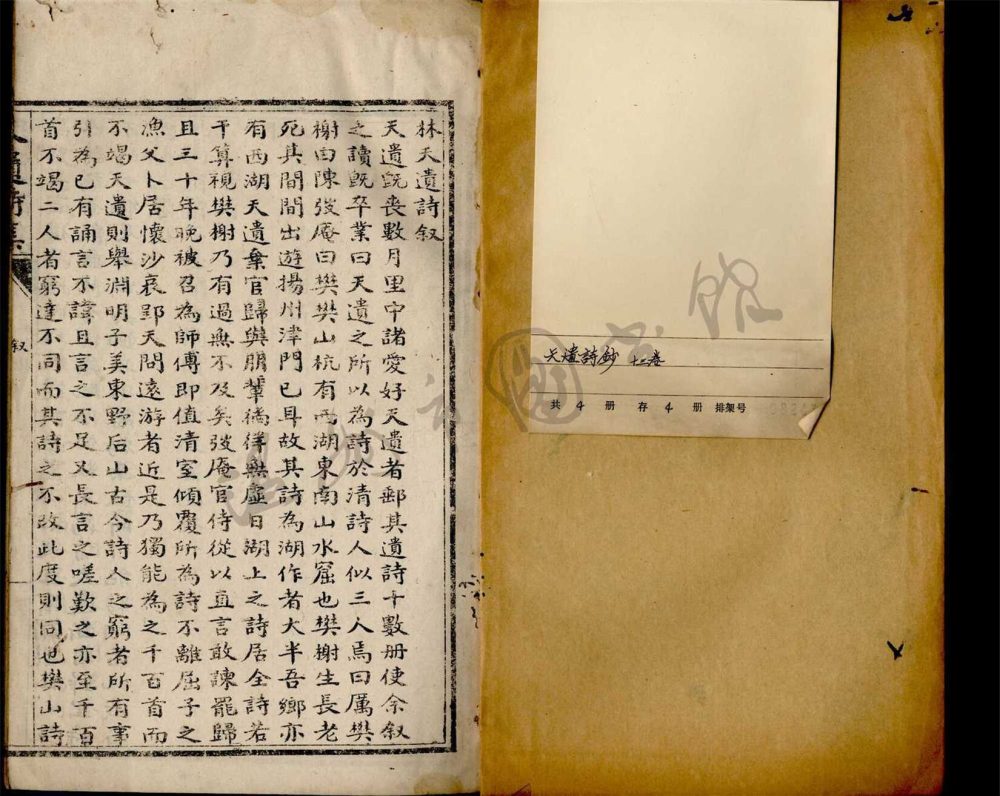 林天遺詩叙
天遺既丧數月里中諸愛好天遺者郵其遺詩十數册使余叙
之讀既卒業曰天遺之所以為詩於清詩人似三人焉曰厲樊
榭曰陳弢庵曰樊樊山杭有西湖東南山水窟也樊榭生長老
死其間間出遊揚州津門已耳故其詩為湖作者大半吾鄉亦
有西湖天遺棄官歸與朋輩徜徉無虛日湖上之詩居全詩若
干算視樊榭乃有過無不及矣弢庵官侍從以直言敢諫罷歸
且三十年晚被召為師傅即值清室傾覆所為詩不離屈子之
漁父卜居懷沙哀郢天問遠游者近是乃獨能為之千百首而
不竭天遺則舉淵明子美東野后山古今詩人之窮者所有事
引為已有誦言不諱且言之不足又長言之嗟歎之亦至千百
首不竭二人者窮達不同而其詩之不改此度則同也樊山詩
天遺詩集
叙
天遺詩鈔 十二卷
共 4 册 存 4 册 排架号